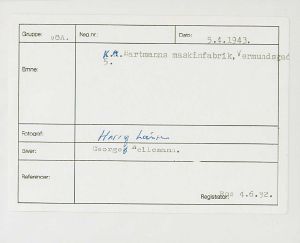 Gruppe: WBA. Neg.nr.: Dato: 5.4.1943.
Emne: K.M. Hartmanns maskinfabrik, Vermundsgade
5.
Fotograf: Harry
Giver: Georges Bellemann.
Referencer:
Registrator: 4.6.92.